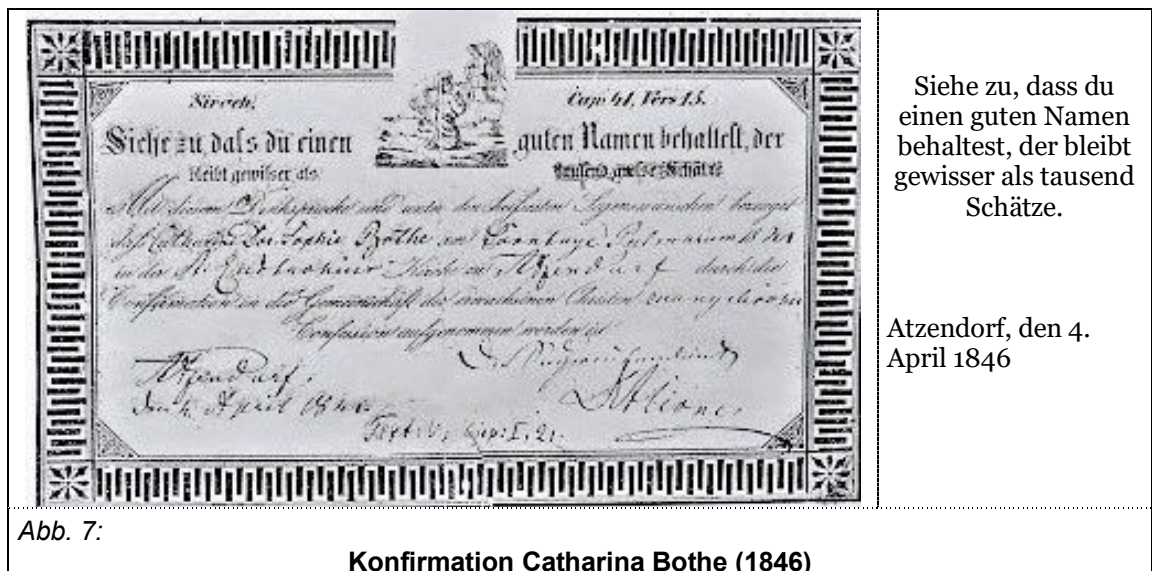 Sirach.
Cap. 41, Vers 15.
Siehe zu daſs du einen guten Namen behaltest, der
bleibt gewisser als tausend große Schätze
Mit diesem Denkspruche und unter den Segenswünschen bezeugt
daß Catharine Dor. Sophie Bothe am Sonntage Palmarum
in der St. Eustachius Kirche zu Atzendorf durch die
Confirmation in die Gemeinschaft der erwachsenen Christen evangelischer
Confession aufgenommen worden ist
Atzendorf,
den 4. April 1846.
Text:
Siehe zu, dass du
einen guten Namen
behaltest, der bleibt
gewisser als tausend
Schätze.
Atzendorf, den 4.
April 1846
Abb. 7:
Konfirmation Catharina Bothe (1846)